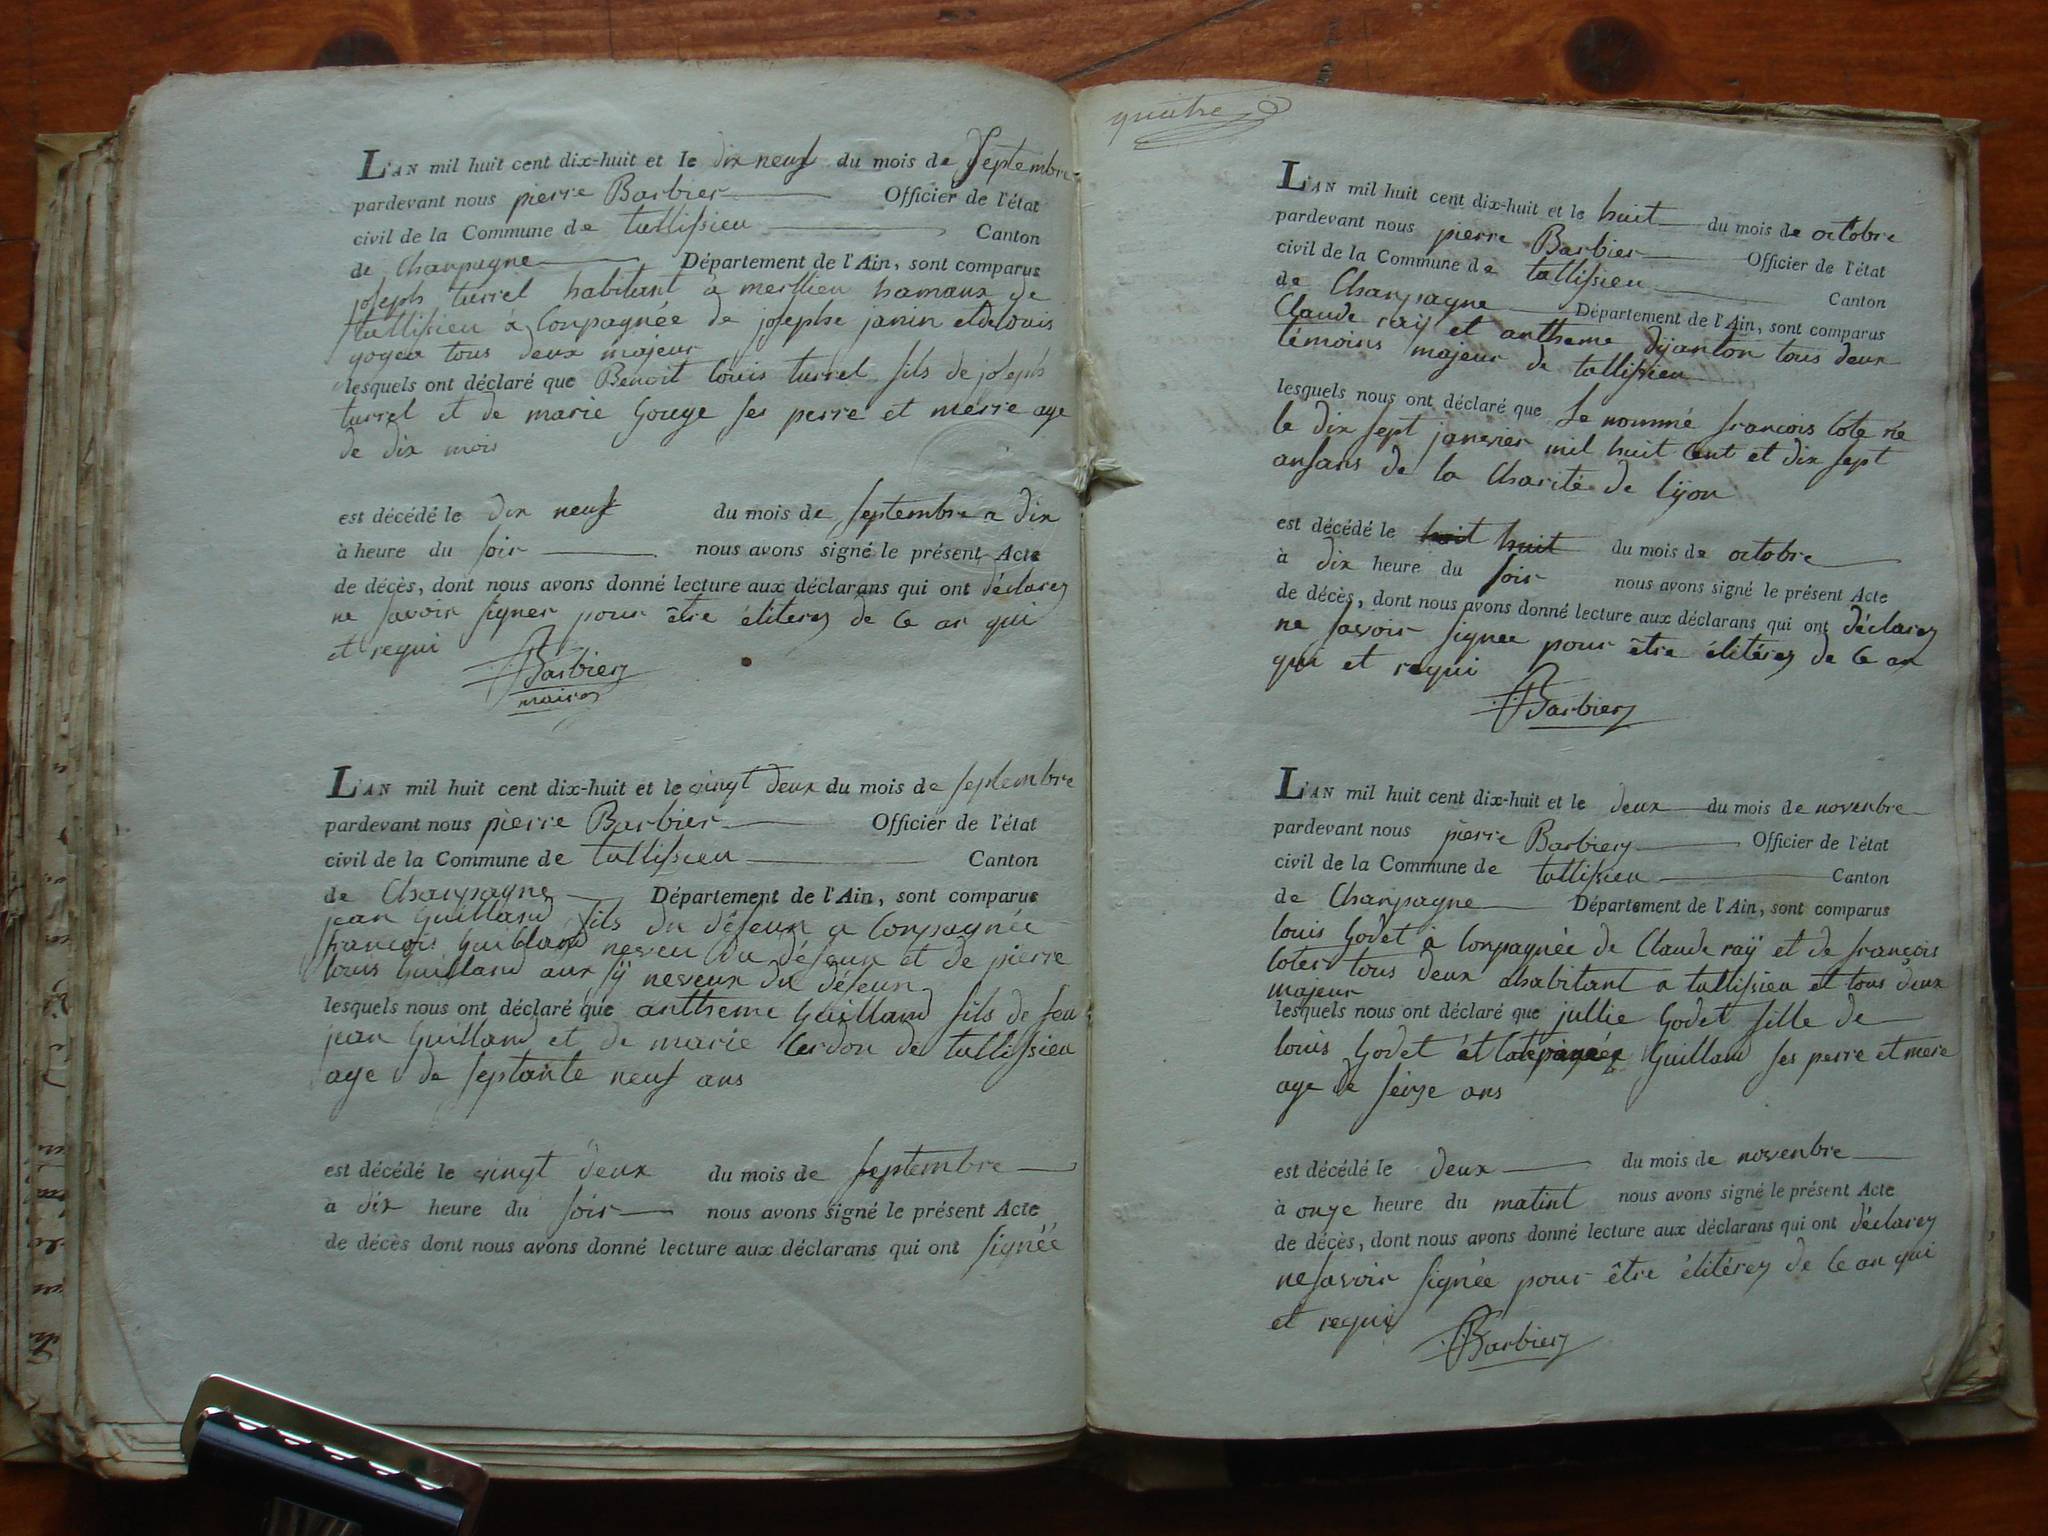 L'AN mil huit cent dix-huit et le dix neuf du mois de Septembre
pardevant nous pierre Barbier Officier de l'état
civil de la Commune de tallissieu Canton
de Chanpagne Département de l'Ain, sont comparus
joseph turrel habitant a merllieu hamaux de
tallissieu à Conpagnée de josephe janin et de louis
tous deux majeur
lesquels ont déclaré que Benoit louis turrel fils de joseph
turrel et de marie Gouge ses perre et merre age
de dix mois
est décédé le dix neuf du mois de septembre a dix
à heure du soir nous avons signé le présent Acte
de décès, dont nous avons donné lecture aux déclarans qui ont déclarez
ne savoir signer pour être éliterez de ce an qui
et requi
Barbier
maire
L'AN mil huit cent dix-huit et le vingt deux du mois de septembre
pardevant nous pierre Barbier Officier de l'état
civil de la Commune de tallissieu Canton
de Chanpagne Département de l'Ain, sont comparus
jean Guilland fils du défeun a Conpagnée
francois Guilland neveu du défeun et de pierre
louis Guilland aux sÿ neveux du défeun
lesquels nous ont déclaré que antheme Guilland fils de feu
jean Guilland et de marie Cerdon de tallissieu
age de septante neuf ans
est décédé le vingt deux du mois de septembre
à dix heure du soir nous avons signé le présent Acte
de décès dont nous avons donné lecture aux déclarans qui ont signéé
quatre
L'AN mil huit cent dix-huit et le huit du mois de octobre
pardevant nous pierre Barbier Officier de l'état
civil de la Commune de tallissieu Canton
de Chanpagne Département de l'Ain, sont comparus
Claude raÿ et antheme dijanton tous deux
témoins majeur de tallissieu
lesquels nous ont déclaré que le nommé francois Cote né
le dix sept janvier mil huit Cent et dix sept
ansans de la Charité de lÿon
est décédé le huit huit du mois de octobre
à dix heure du soir nous avons signé le présent Acte
de décès, dont nous avons donné lecture aux déclarans qui ont déclarez
ne savoir signee pour être élitérez de ce an
qui et requi
Barbier
L'AN mil huit cent dix-huit et le deux du mois de novenbre
pardevant nous pierre Barbier Officier de l'état
civil de la Commune de tallissieu Canton
de Chanpagne Département de l'Ain, sont comparus
louis Godet à Conpagnée de Claude raÿ et de françois
Coter tous deux ahabitant a tallissieu et tous deux
majeur
lesquels nous ont déclaré que jullie Godet fille de
louis Godet et Guilland ses perre et mere
age de seize ans
est décédé le deux du mois de novenbre
à onze heure du matint nous avons signé le présent Acte
de décès, dont nous avons donné lecture aux déclarans qui ont déclarez
ne savoir signée pour être élitérez de ce an qui
et requi
Barbier